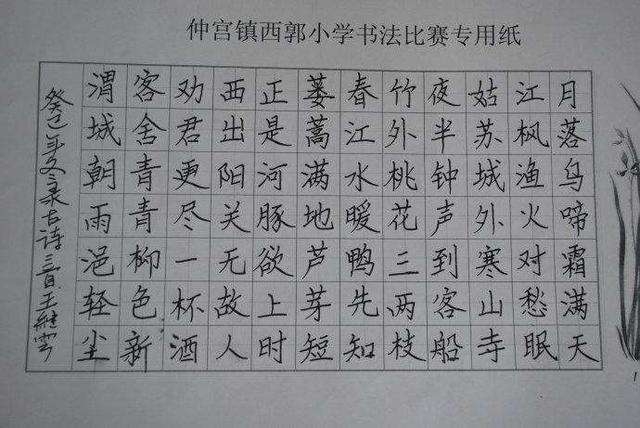 仲宫镇西郭小学书法比赛专用纸
月落乌啼霜满天
江枫渔火对愁眠
姑苏城外寒山寺
夜半钟声到客船
竹外桃花三两枝
春江水暖鸭先知
蒌蒿满地芦芽短
正是河豚欲上时
西出阳关无故人
劝君更尽一杯酒
客舍青青柳色新
渭城朝雨浥轻尘
癸巳年冬录古诗三首王继雲